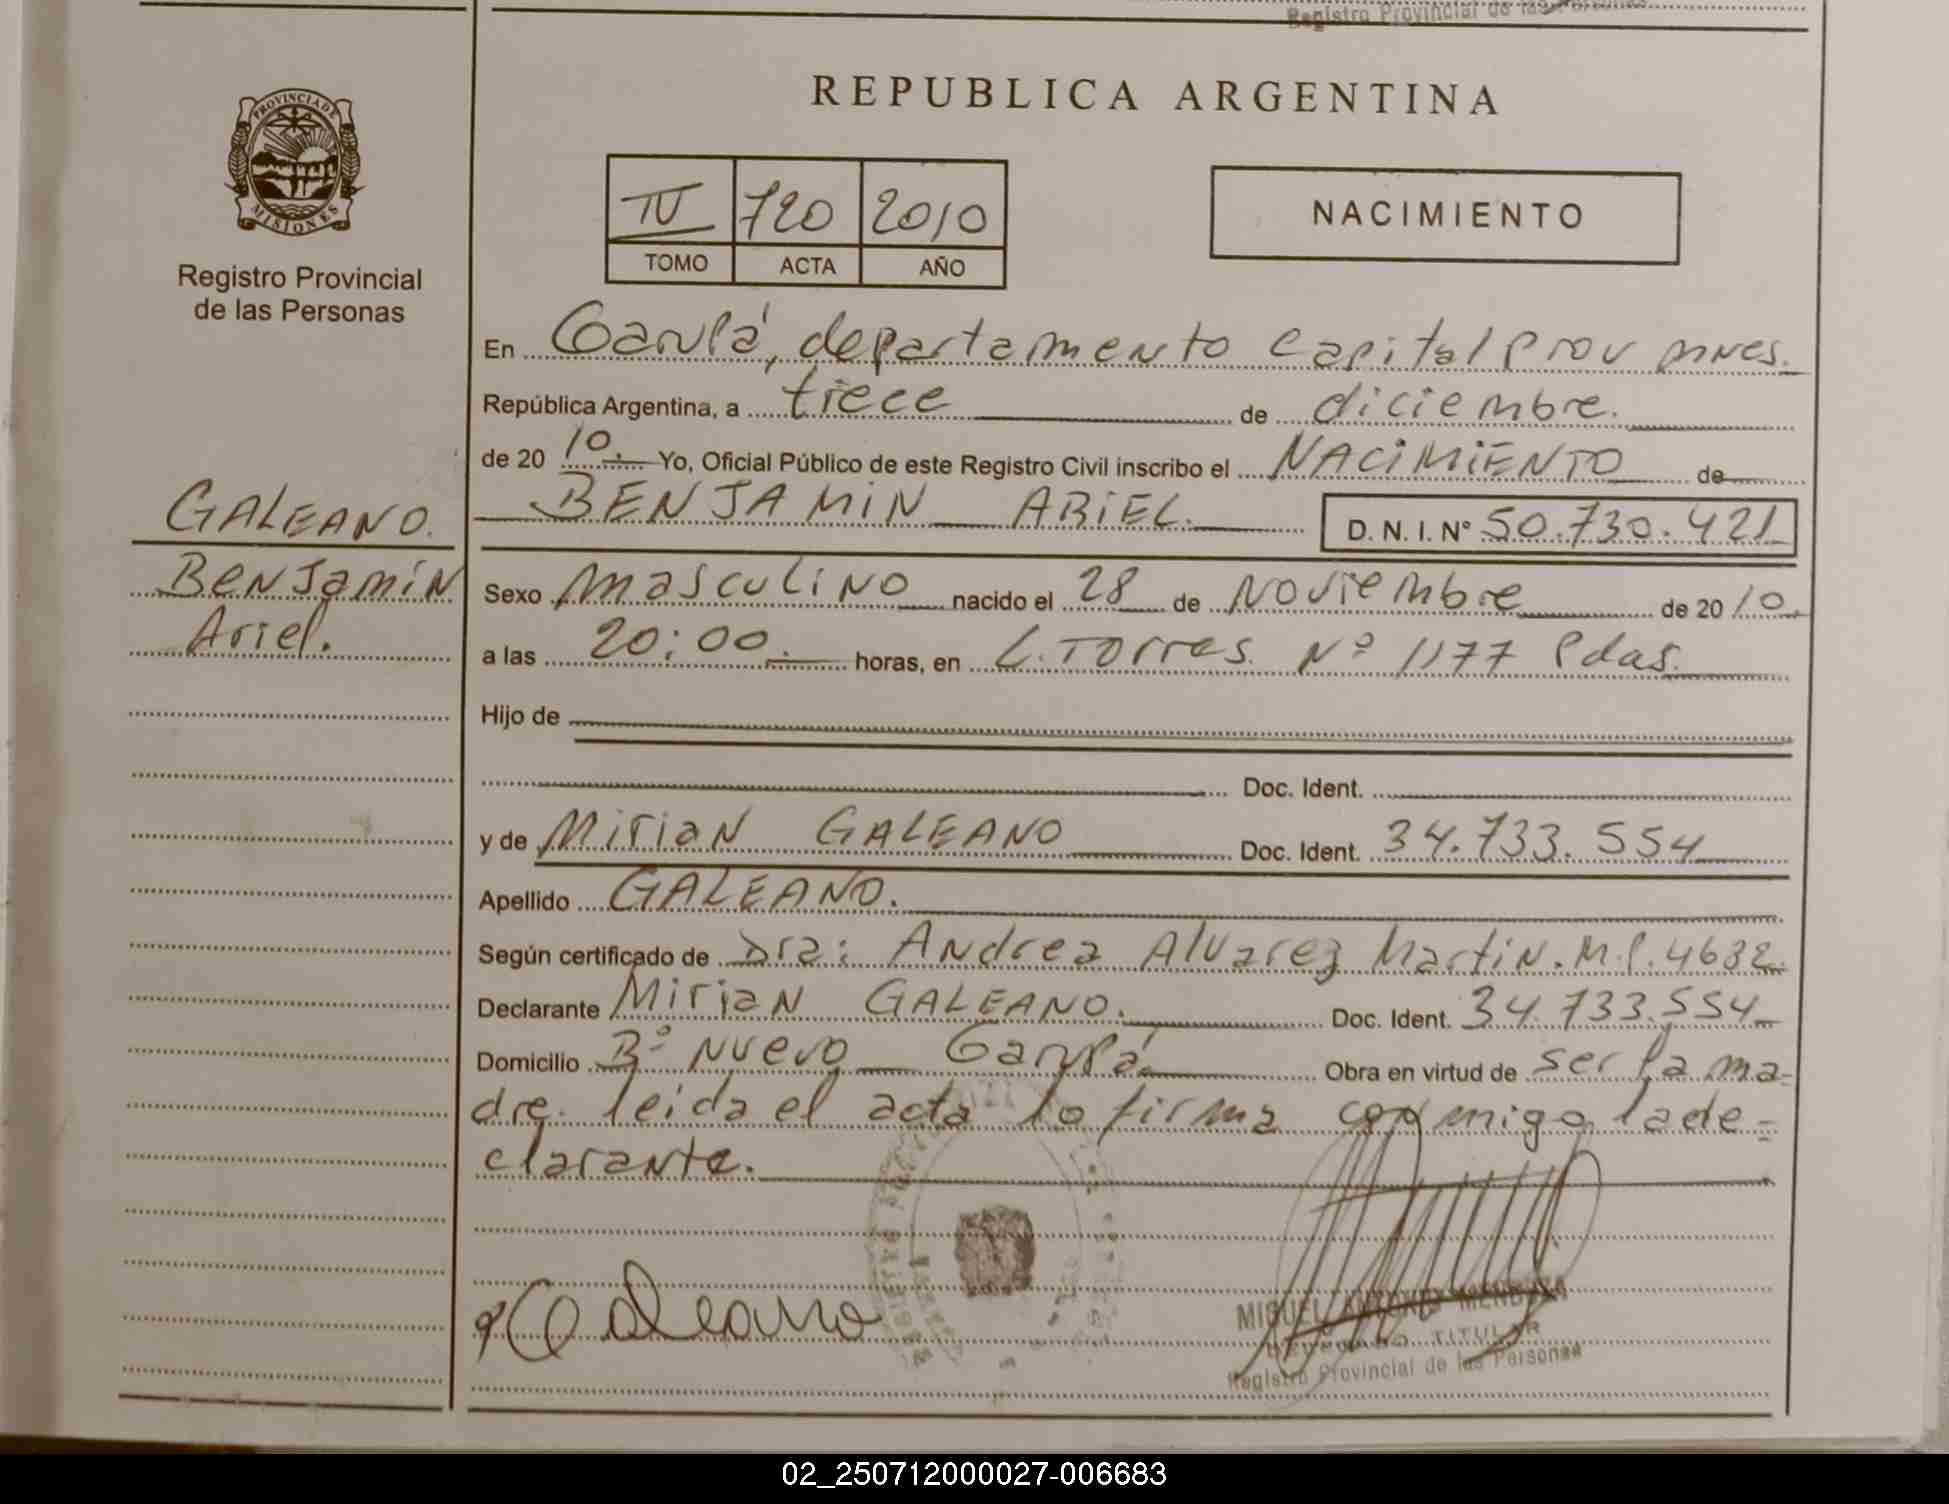 Registro Provincial de las Personas
REPUBLICA ARGENTINA
PROVINCIA DE
MISIONES
Registro Provincial
de las Personas
IV 720 2010
TOMO ACTA AÑO
NACIMIENTO
En Garupá, departamento Capital Prov mnes.
República Argentina, a trece de diciembre.
de 20 10. Yo, Oficial Público de este Registro Civil inscribo el NACIMIENTO de
BENJAMIN ARIEL. D. N. I. Nº 50.730.421
GALEANO.
Benjamín
Ariel.
Sexo masculino nacido el 28 de Noviembre de 20 10.
a las 20:00. horas, en L. Torres. Nº 1177 Pdas.
Hijo de
Doc. Ident.
y de Mirian GALEANO Doc. Ident. 34.733.554
Apellido GALEANO.
Según certificado de Dra: Andrea Alvarez Martin. M.P. 4632.
Declarante Mirian GALEANO. Doc. Ident. 34.733.554
Domicilio Bº Nuevo Garupá. Obra en virtud de ser la ma-
dre. leida el acta la firma conmigo la de=
clarante.
Galeano
MIGUEL ANTONIO MENDOZA
TITULAR
Registro Provincial de las Personas
02_250712000027-006683